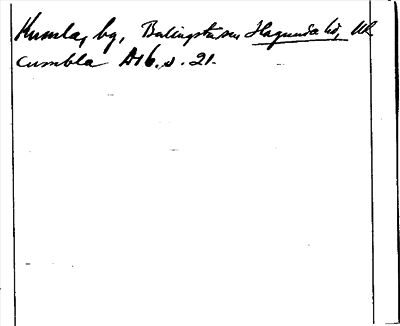 Kumla, bg, Balingsta sn Hagunda hd, Uk
cumbla A16. s. 21.